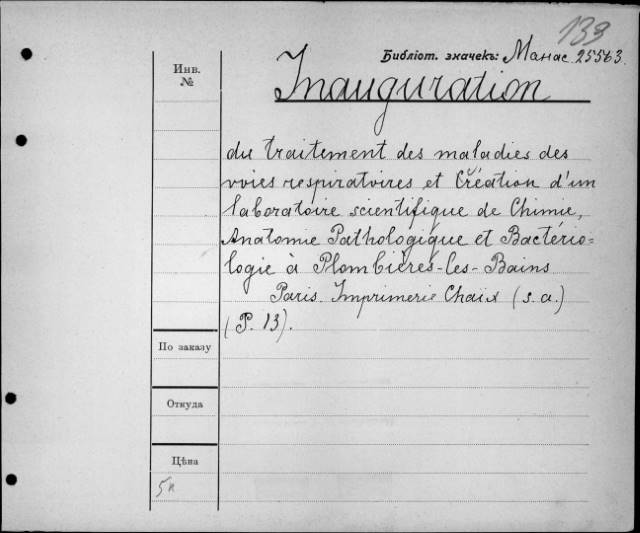 133
Библіот. значекъ: Манас 25563.
Инв. №
Inauguration
du traitement des maladies des
voies respiratoires et Création d'un
laboratoire scientifique de Chimie,
Anatomie Pathologique et Bactério=
logie à Plombières-les-Bains
Paris. Imprimerie Chaix (s. a.)
(P. 13).
По заказу
Откуда
Цѣна
5к